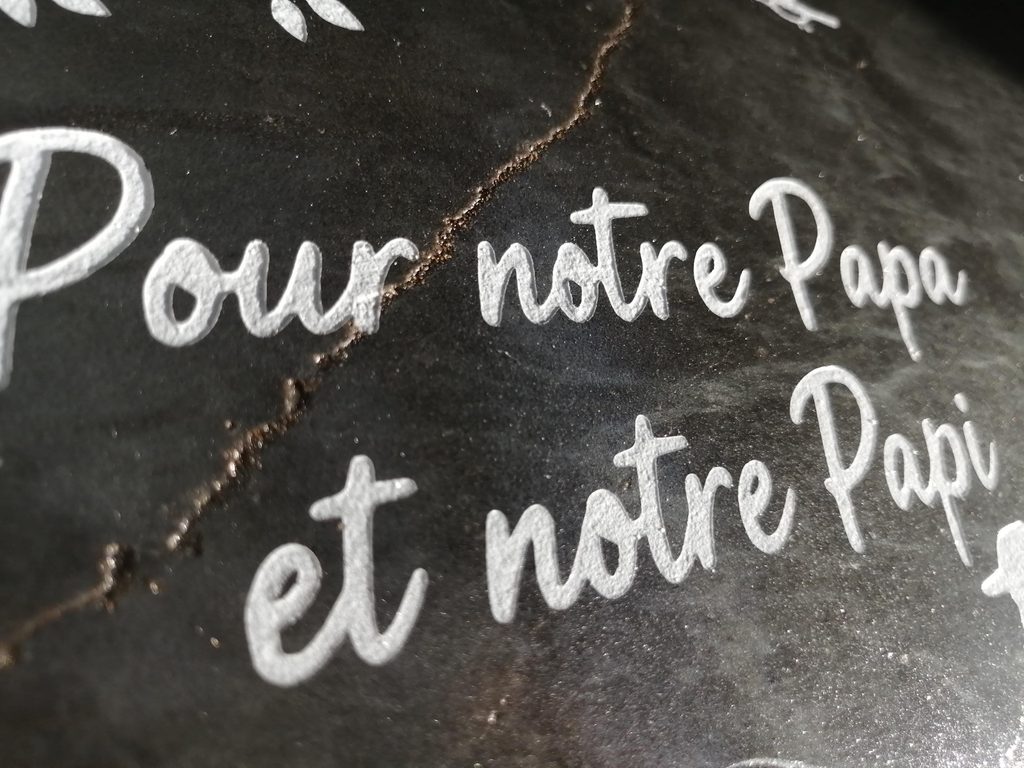 Pour notre Papa
et notre Papi